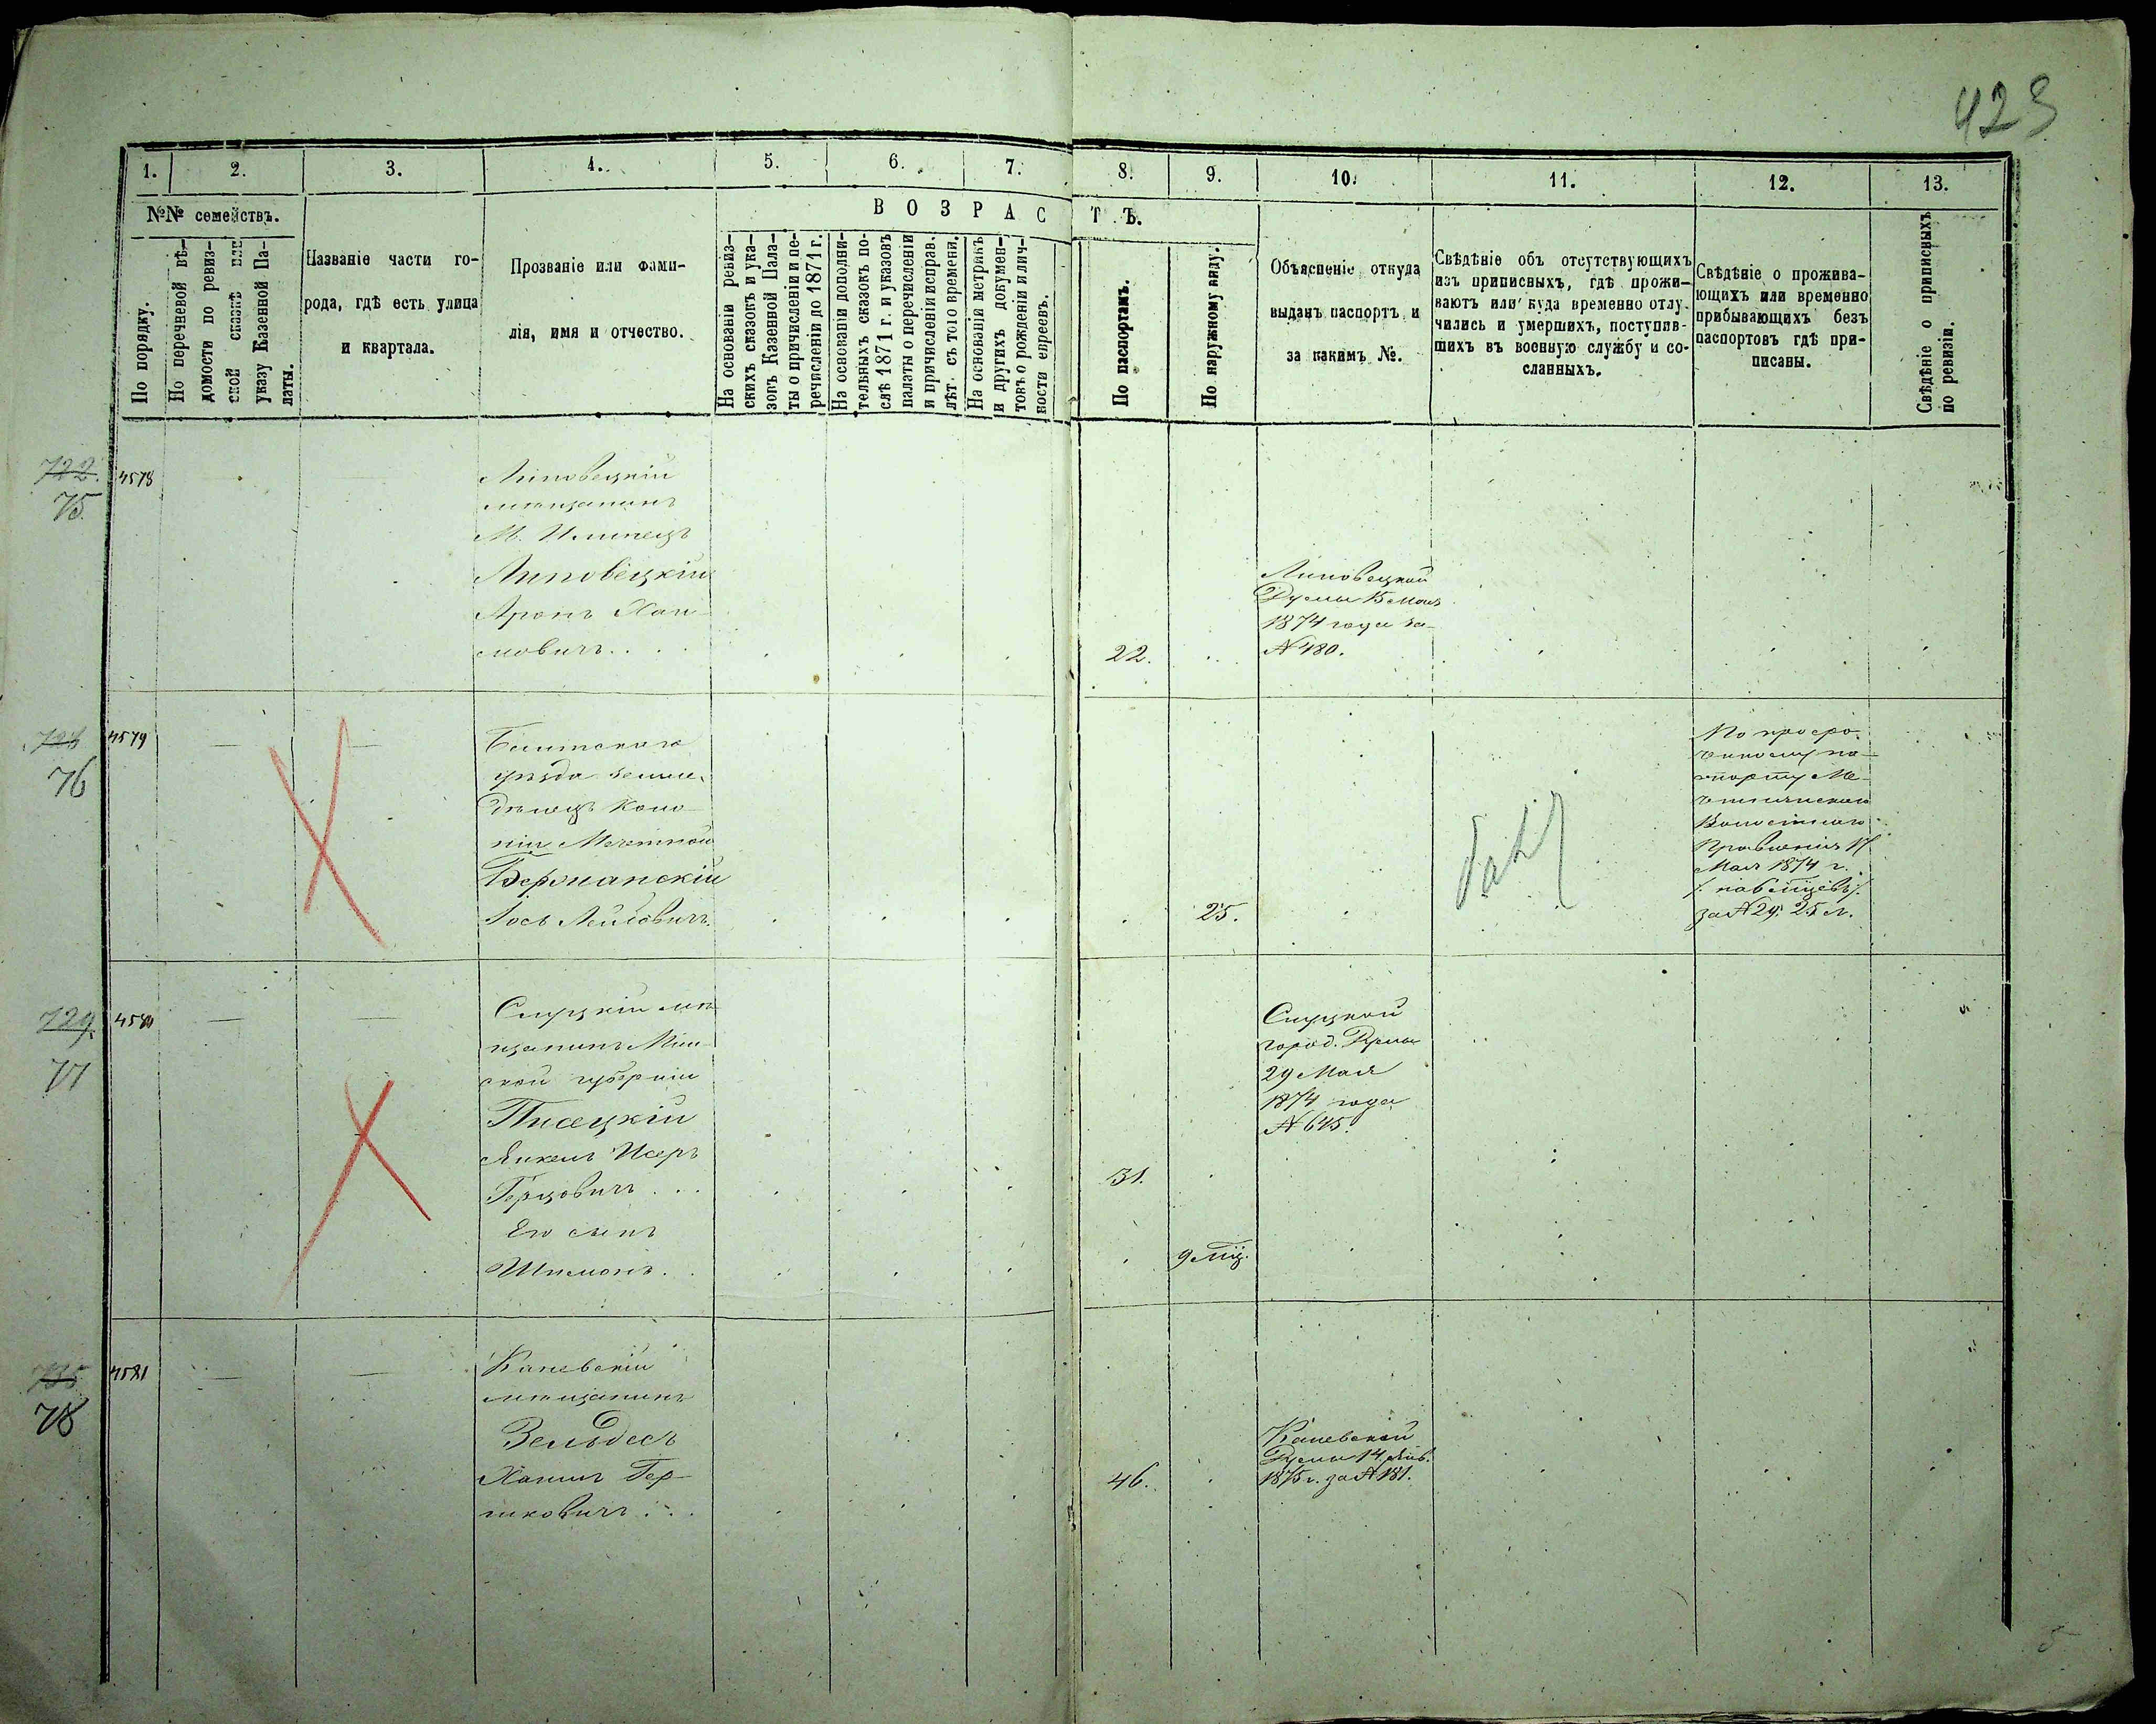 423
1. 2. 3. 4. 5. 6. 7. 8. 9. 10. 11. 12. 13.
№№ семействъ.
По порядку.
По перечневой вѣ-
домости по ревиз-
ской сказкѣ или
указу Казенной Па-
латы.
Названіе части го-
рода, гдѣ есть улица
и квартала.
Прозваніе или фами-
лія, имя и отчество.
ВОЗРАСТЪ.
На основаніи ревиз-
скихъ сказокъ и ука-
зовъ Казенной Пала-
ты о причисленіи и пе-
речисленіи до 1871 г.
На основаніи дополни-
тельныхъ сказокъ по-
слѣ 1871 г. и указовъ
палаты о перечисленіи
и причисленіи исправ.
лѣт. съ того времени.
На основаніи метрикъ
и другихъ докумен-
товъ о рожденіи и лич-
ности евреевъ.
По паспортамъ.
По наружному виду.
Объясненіе откуда
выданъ паспортъ и
за какимъ №.
Свѣдѣніе объ отсутствующихъ
изъ приписныхъ, гдѣ прожи-
ваютъ или куда временно отлу-
чились и умершихъ, поступив-
шихъ въ военную службу и со-
сланныхъ.
Свѣдѣніе о прожива-
ющихъ или временно
прибывающихъ безъ
паспортовъ гдѣ при-
писаны.
Свѣдѣніе о приписныхъ
по ревизіи.
722
75
4578
Липовецкій
мѣщанинъ
М. Илинецъ
Липовецкій
Аронъ Хаи-
мовичъ....
22.
Липовецкой
Думы 15 мая
1874 года за
№ 480.
76
4579
уѣзда земле-
дѣлецъ Коло-
ніи Мечетной
Іось Лейбовичъ.
25.
По просро-
ченному па-
спорту
Волостного
Правленія 17
Мая 1874 г.
за № 29. 25 л.
729
77
4580
Слуцкій мѣ-
щанинъ Мин-
ской губерніи
Писецкій
Янкель Исеръ
Герцовичъ...
Его сынъ
Шлемонъ..
31.
9 мц.
Слуцкой
город. Думы
29 Мая
1874 года
№ 645.
735
78
4581
Каневскій
мѣщанинъ
Зельдесъ
Хаимъ Гер-
шковичъ...
46.
Каневской
Думы 14 Янв.
1875 г. за № 181.
5